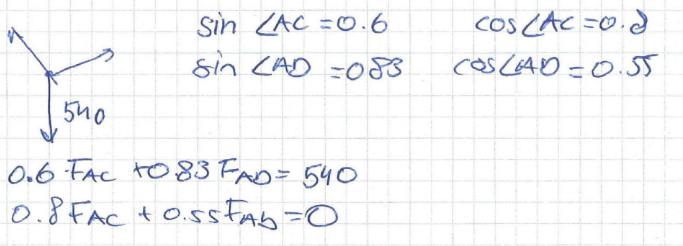 sin ∠AC = 0.6 cos∠AC = 0.8
sin ∠AD = 083 cos∠AD = 0.55
540
0.6 F_AC + 0.83 F_AD = 540
0.8 F_AC + 0.55 F_AD = 0